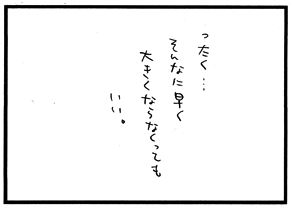 ったく…
そんなに早く
大きくならなくっても
いい。